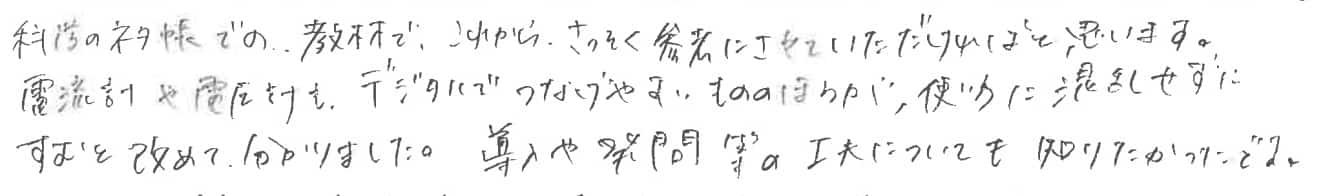 科学のネタ帳での、教材で、これから、さっそく参考にさせていただければと思います。
電流計や電圧計も、デジタルでつなげやすいもののほうが、使い方に混乱せずに
すむと改めて分かりました。導入や発問等の工夫についても知りたかったです。